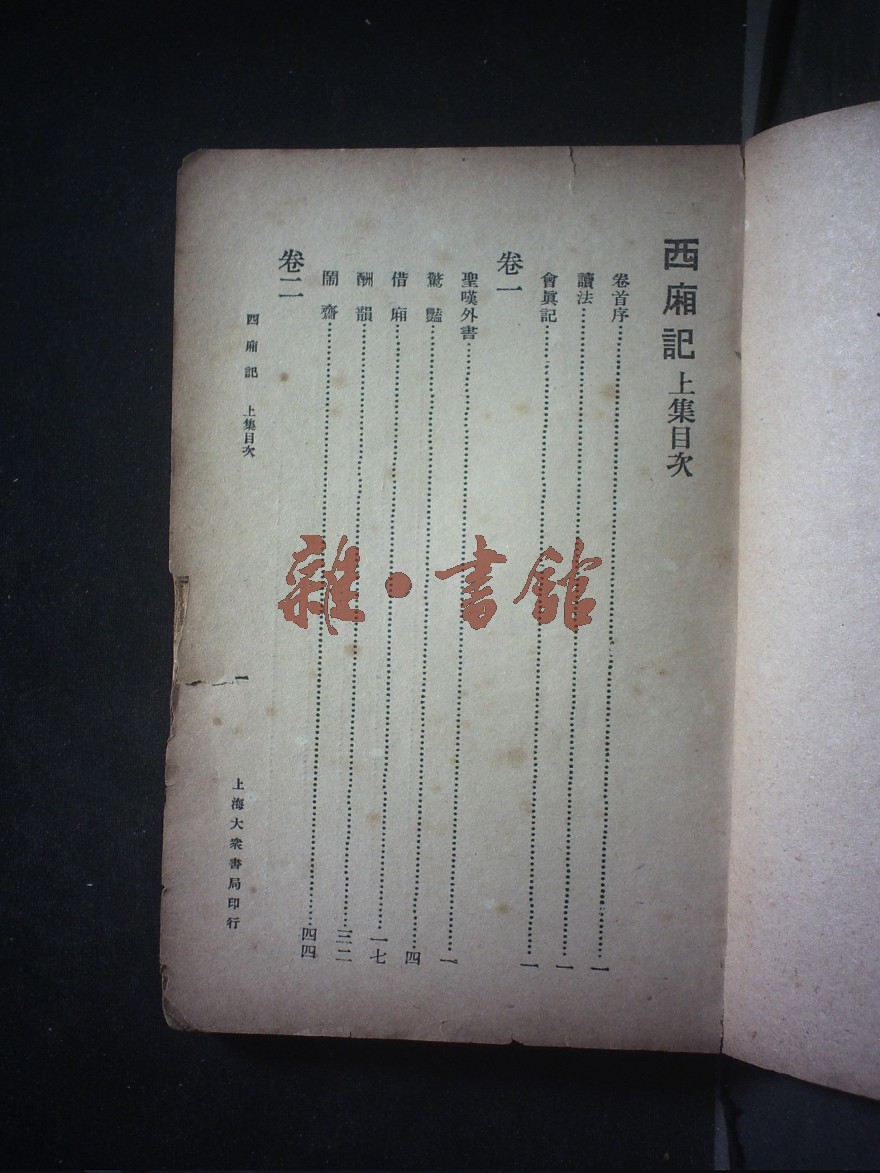 西廂記 上集目次
卷首序⋯⋯一
讀法⋯⋯一
會眞記⋯⋯一
卷一
聖嘆外書⋯⋯一
驚豔⋯⋯四
借廂⋯⋯一七
酬韻⋯⋯三二
鬧齋⋯⋯四四
卷二
西廂記 上集目次
一
上海大衆書局印行
雜·書館